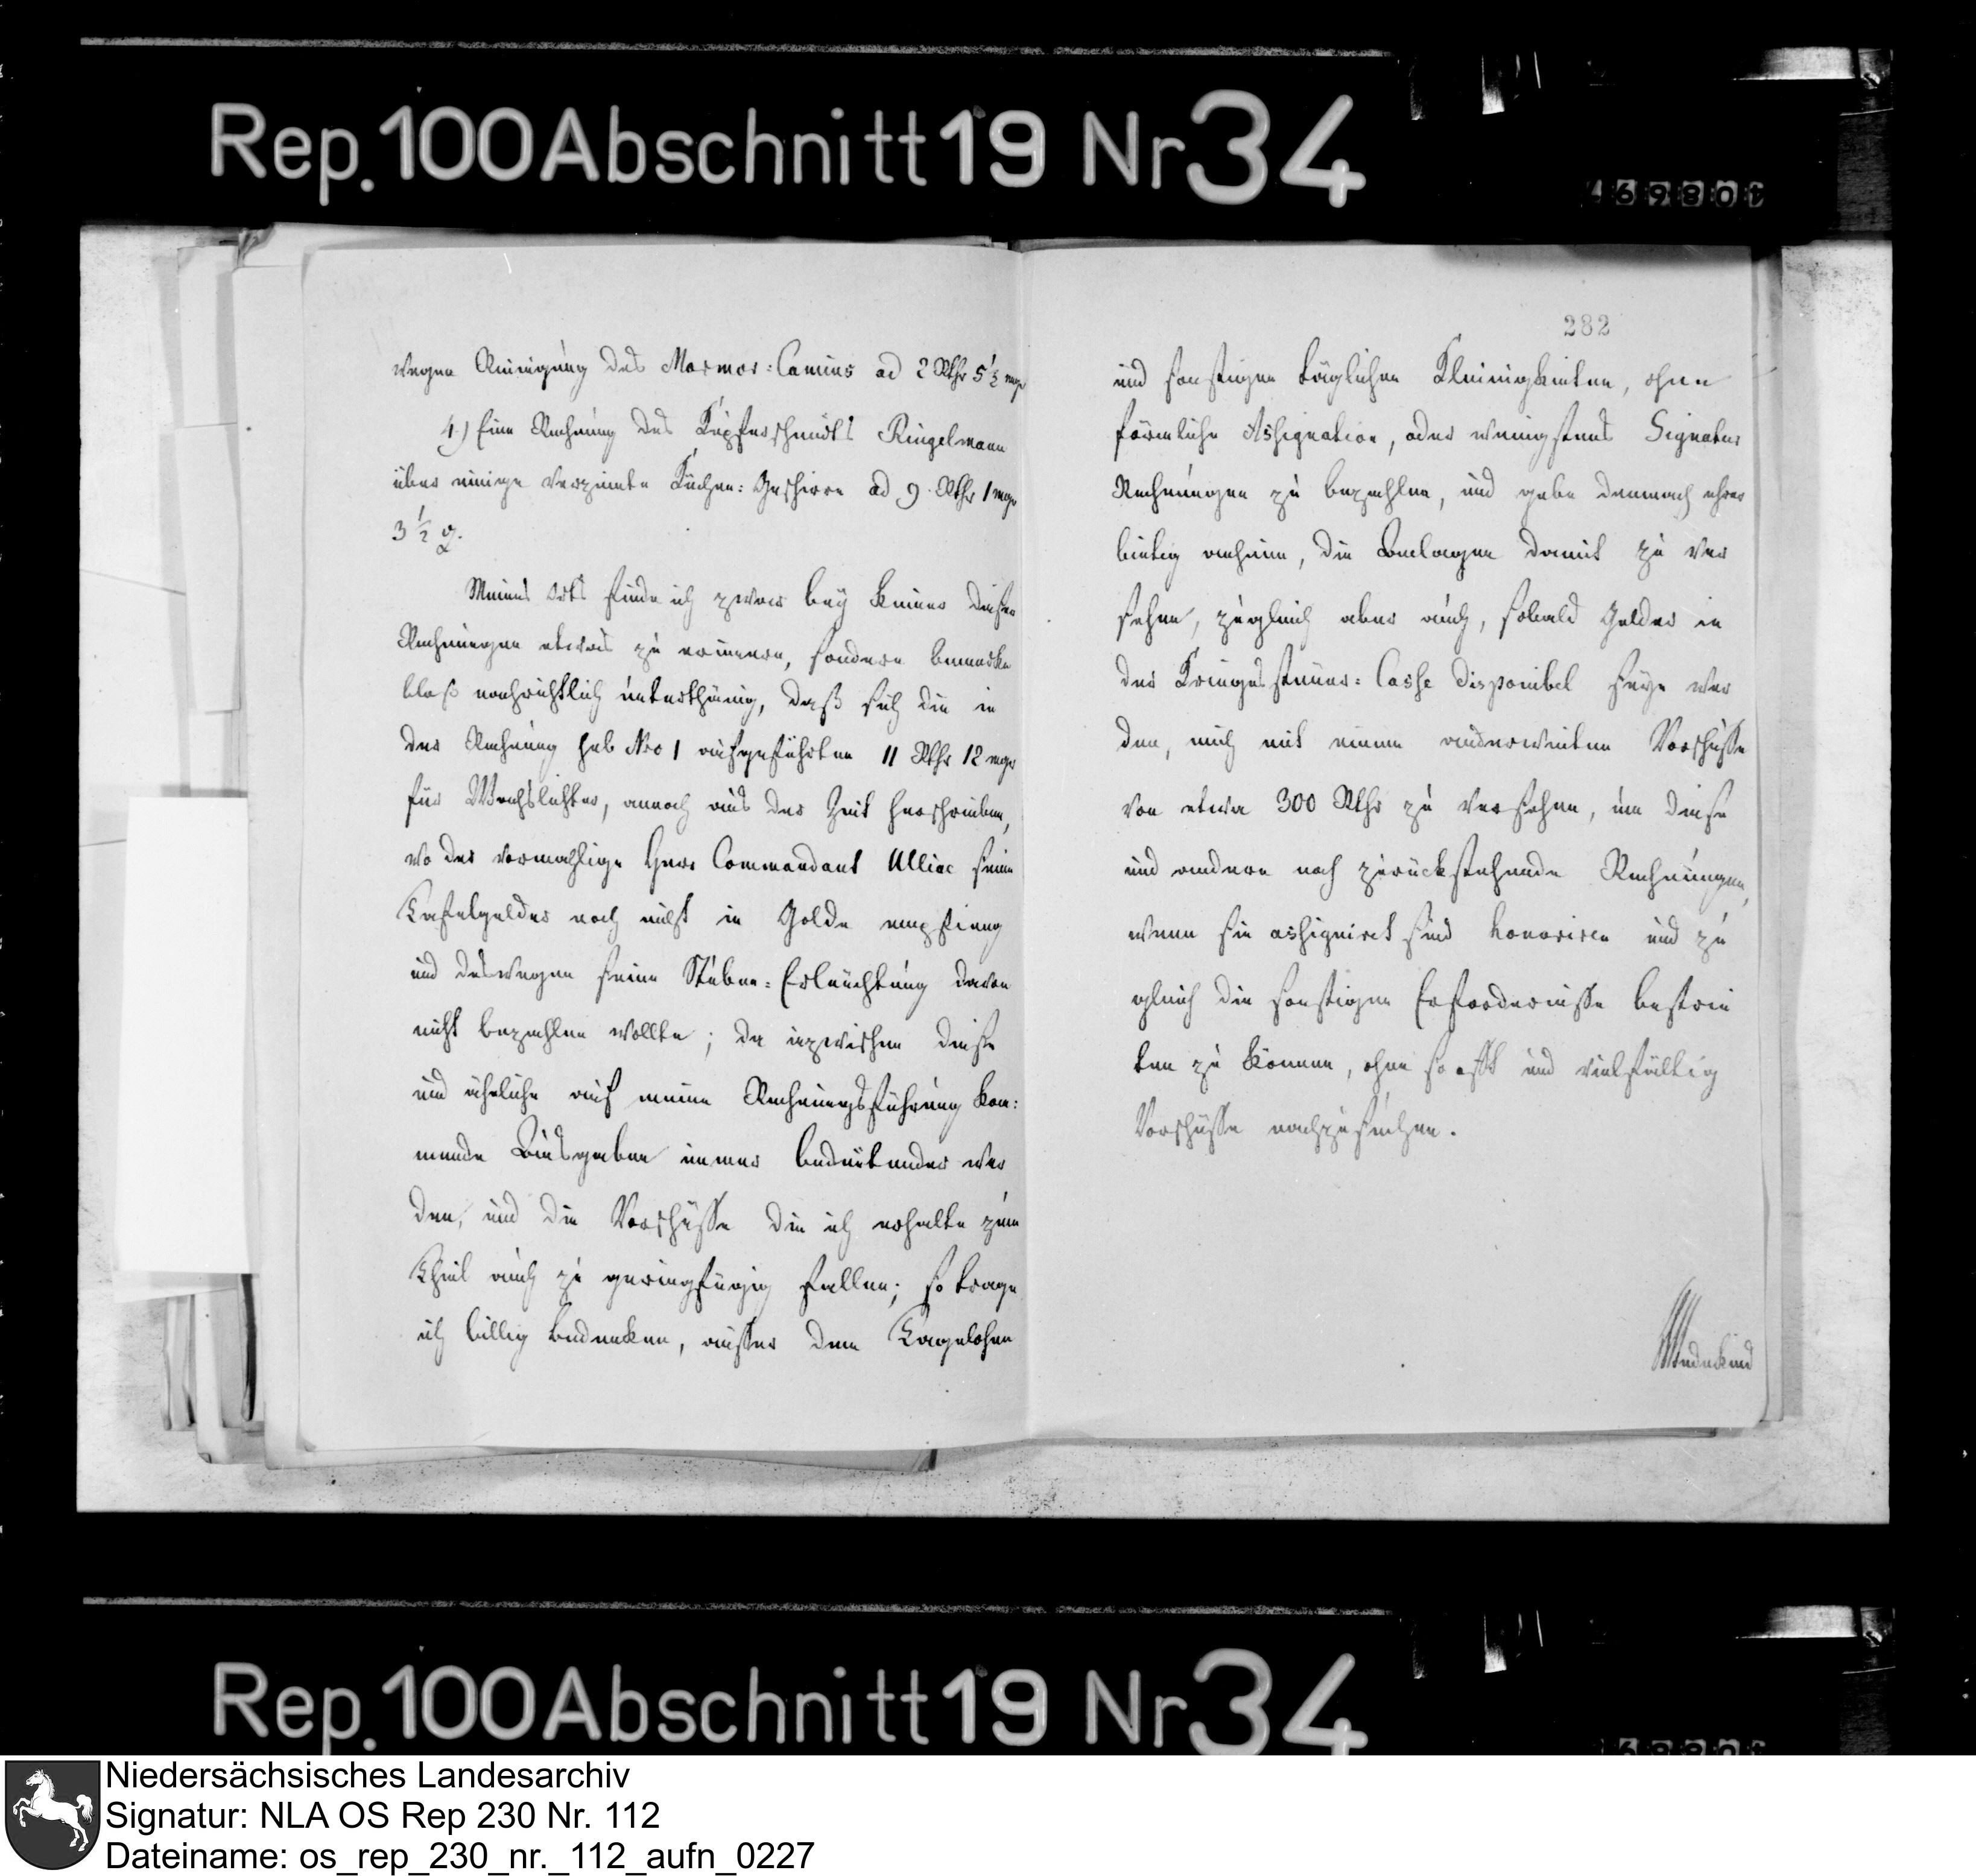 Rep. 100 Abschnitt 19 Nr 34
469801
wegen Reinigung des Marmor=Camins ad 2 Rthr 5½ mgr
4.) Eine Rechnung des Kupferschmidts Ringelmann
über einige verzinnte Küchen=Geschirre ad 9 Rthr 1 mgr
3½ ₰.
Meines Orts finde ich zwar bey keiner dieser
Rechnungen etwas zu erinnern, sondern bemerke
bloß nachrichtlich unterthänig, daß sich die in
der Rechnung sub Nro 1 aufgeführten 11 Rthr 12 mgr
für Wachslichter, annoch aus der Zeit herschreiben,
wo der vormahlige Herr Commandant Ulliac seine
Tafelgelder noch nicht in Golde empfieng
und deswegen seine Stuben=Erleuchtung davon
nicht bezahlen wollte; da inzwischen diese
und ähnliche auf meine Rechnungsführung kom=
mende Ausgaben immer bedeutender wer
den, und die Vorschüsse die ich erhalte zum
Theil auch zu geringfügig fallen; so trage
ich billig Bedencken, ausser dem Tagelohne
282
und sonstigen täglichen Kleinigkeiten, ohne
förmliche Assignation, oder wenigstens Signatur
Rechnungen zu bezahlen, und gebe demnach ehrer
bietig anheim, die Anlagen damit zu ver
sehen, zugleich aber auch, sobald Gelder in
der Kriegessteuer=Casse disponibel seyn wer
den, mich mit einem anderweiten Vorschusse
von etwa 300 Rthr zu versehen, um diese
und andere noch zurückstehende Rechnungen,
wenn sie assigniret sind honoriren und zu
gleich die sonstigen Erfordernisse bestrei
ten zu können, ohne so offt und vielfältig
Vorschüsse nachzusuchen.
Wedekind
Rep. 100 Abschnitt 19 Nr 34
Niedersächsisches Landesarchiv
Signatur: NLA OS Rep 230 Nr. 112
Dateiname: os_rep_230_nr._112_aufn_0227